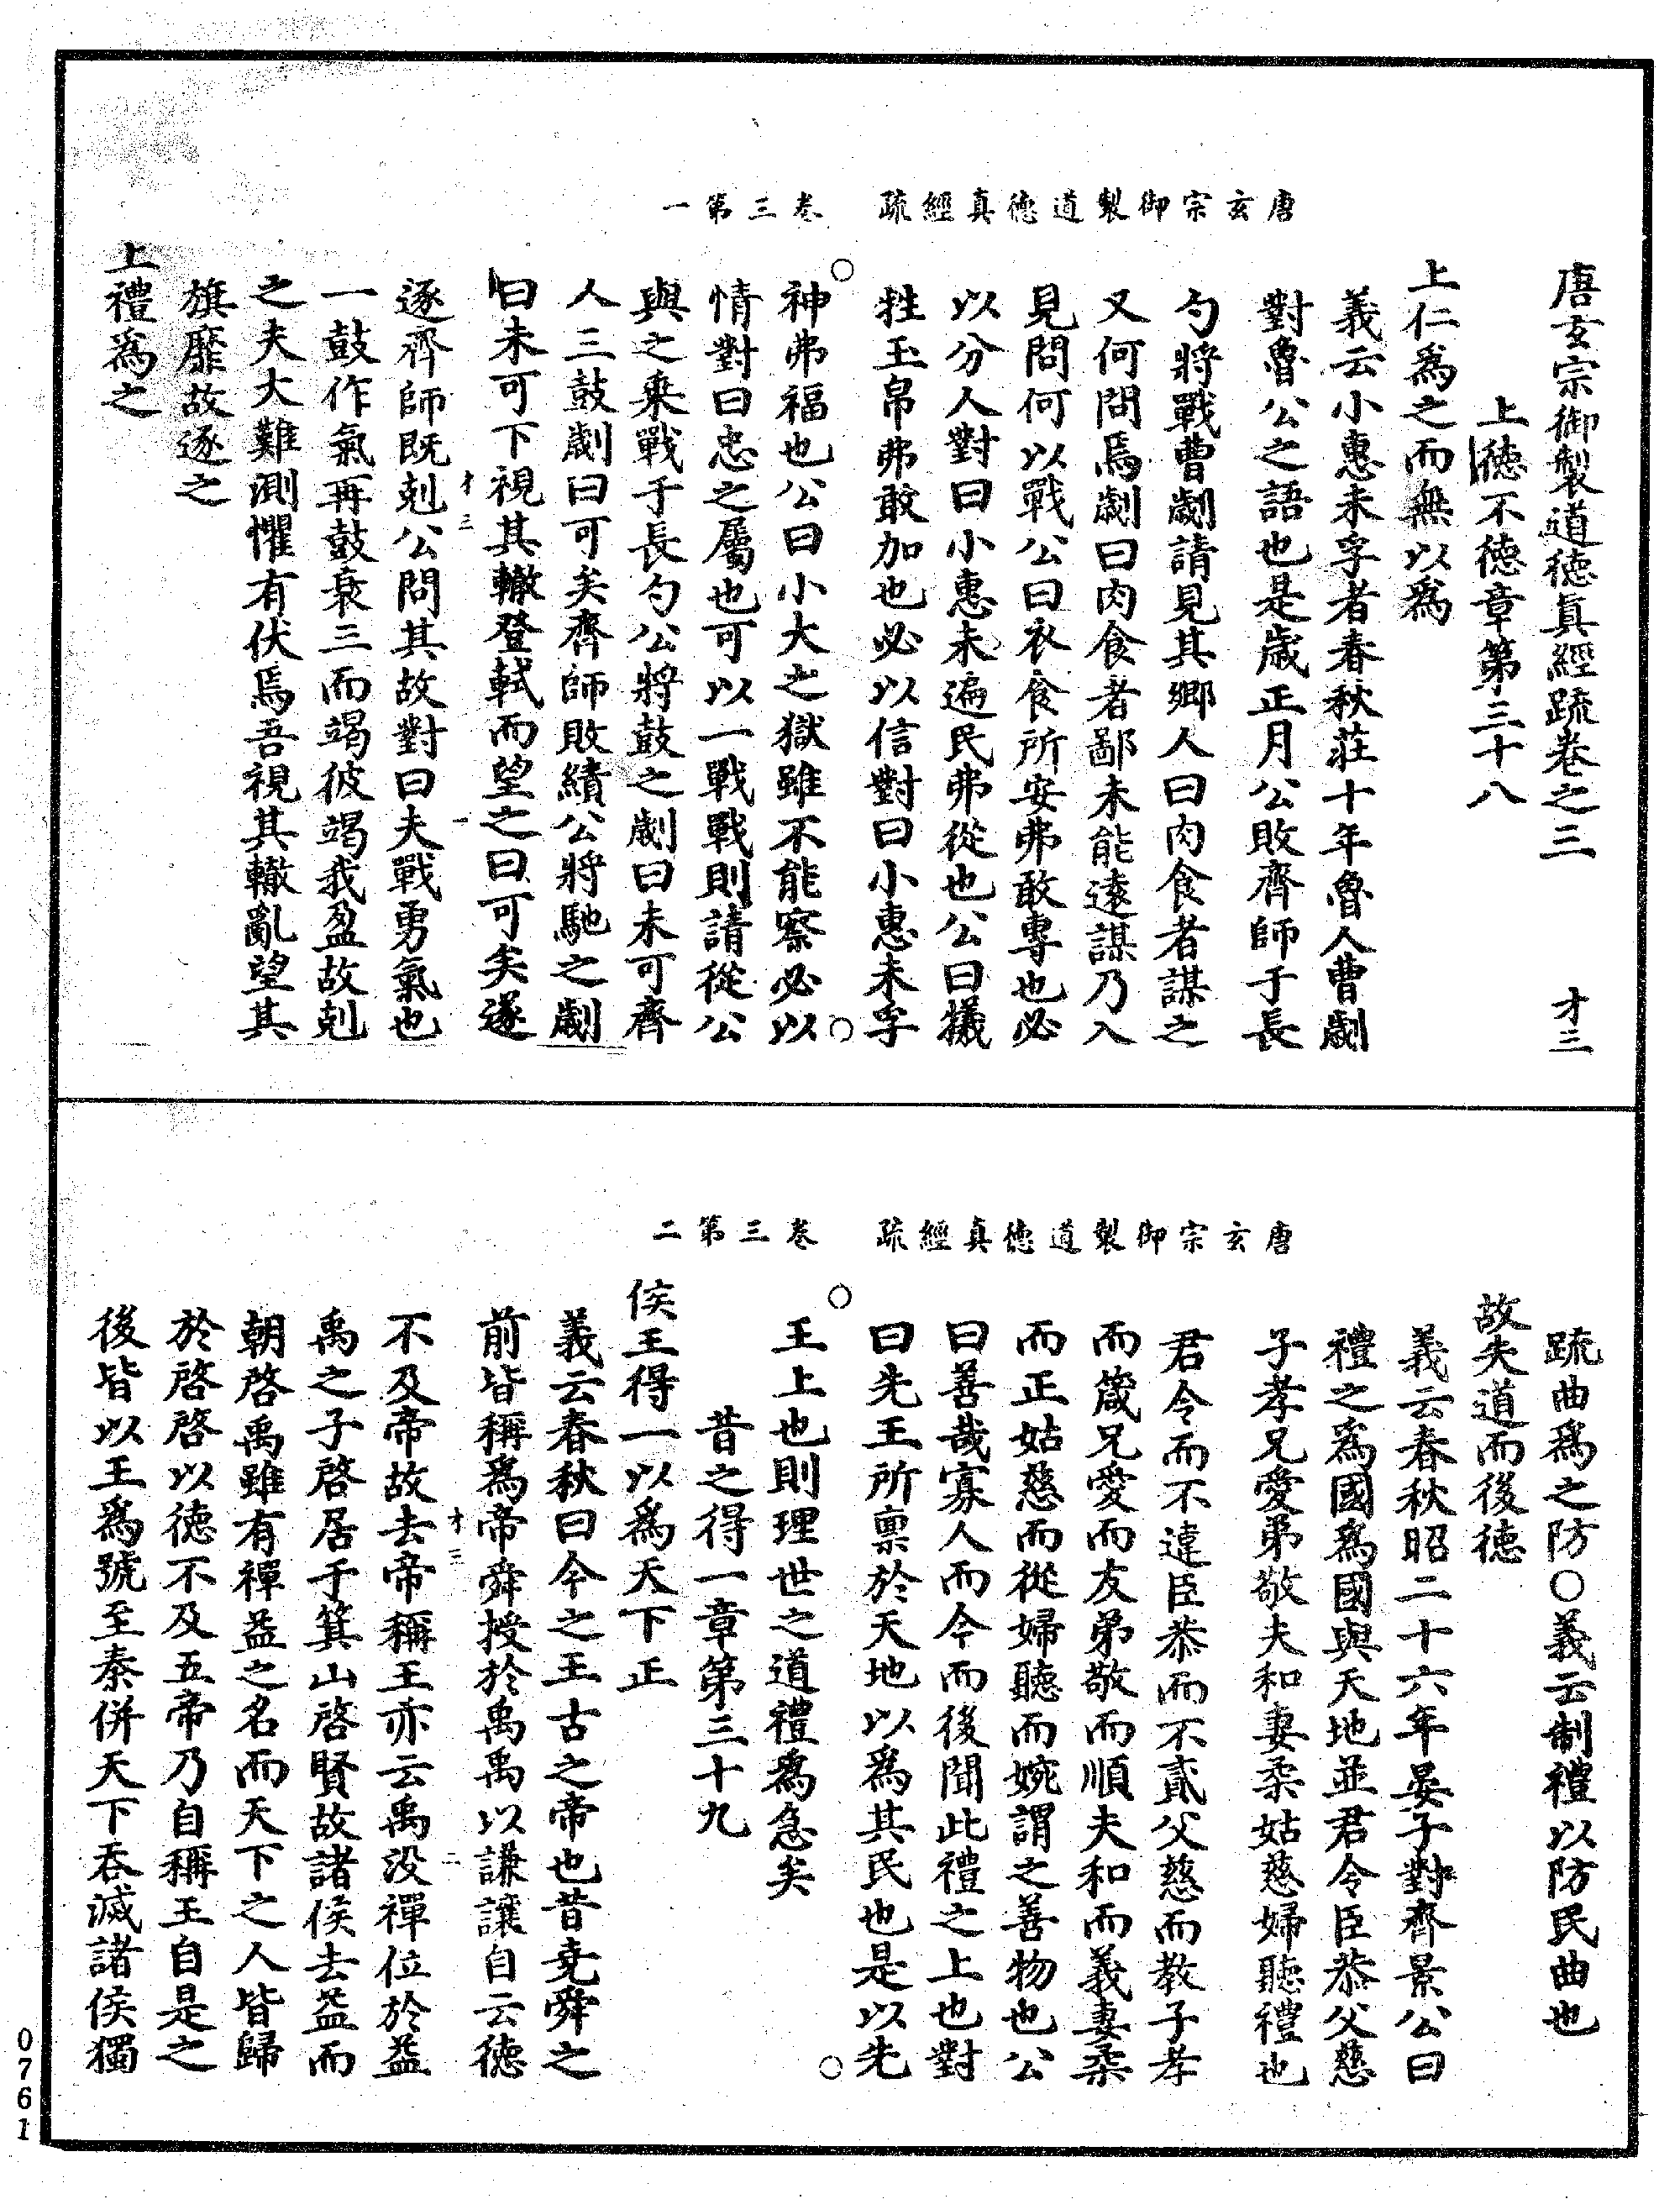 唐玄宗御製道德真經疏　卷三第一
唐玄宗御製道德眞經疏卷之三　才三
上德不德章第三十八
上仁爲之而無以爲
義云小惠未孚者春秋莊十年魯人曹劌
對魯公之語也是歲正月公敗齊師于長
勺將戰曹劌請見其鄉人曰肉食者謀之
又何間焉劌曰肉食者鄙未能遠謀乃入
見問何以戰公曰衣食所安弗敢專也必
以分人對曰小惠未遍民弗從也公曰犧
牲玉帛弗敢加也必以信對曰小惠未孚
神弗福也公曰小大之獄雖不能察必以
情對曰忠之屬也可以一戰戰則請從公
與之乘戰于長勺公將鼓之劌曰未可齊
人三鼓劌曰可矣齊師敗績公將馳之劌
曰未可下視其轍登軾而望之曰可矣遂
逐齊師旣剋公問其故對曰夫戰勇氣也
才三　一
一鼓作氣再鼓衰三而竭彼竭我盈故剋
之夫大難測懼有伏焉吾視其轍亂望其
旗靡故逐之
上禮爲之
唐玄宗御製道德真經疏　卷三第二
疏曲爲之防○義云制禮以防民曲也
故失道而後德
義云春秋昭二十六年晏子對齊景公曰
禮之爲國爲國與天地並君令臣恭父慈
子孝兄愛弟敬夫和妻柔姑慈婦聽禮也
君令而不違臣恭而不貳父慈而教子孝
而箴兄愛而友弟敬而順夫和而義妻柔
而正姑慈而從婦聽而婉謂之善物也公
曰善哉寡人而今而後聞此禮之上也對
曰先王所稟於天地以爲其民也是以先
王上也則理世之道禮爲急矣
昔之得一章第三十九
侯王得一以爲天下正
義云春秋曰今之王古之帝也昔堯舜之
前皆稱爲帝舜授於禹禹以謙讓自云德
不及帝故去帝稱王亦云禹没禪位於益
才三　二
禹之子啓居于箕山啓賢故諸侯去益而
朝啓禹雖有禪益之名而天下之人皆歸
於啓啓以德不及五帝乃自稱王自是之
後皆以王爲號至秦併天下吞滅諸侯獨
0761